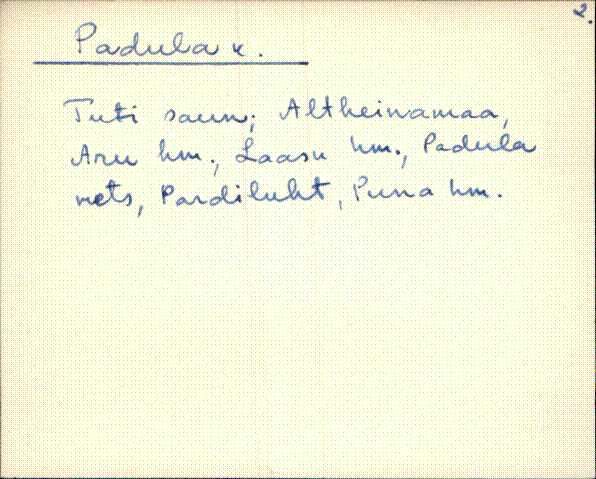 2.
Padula k.
Tuti saun; Altheinamaa,
Aru hm., Laasu hm., Padula
mets, Pardiluht, Puna hm.